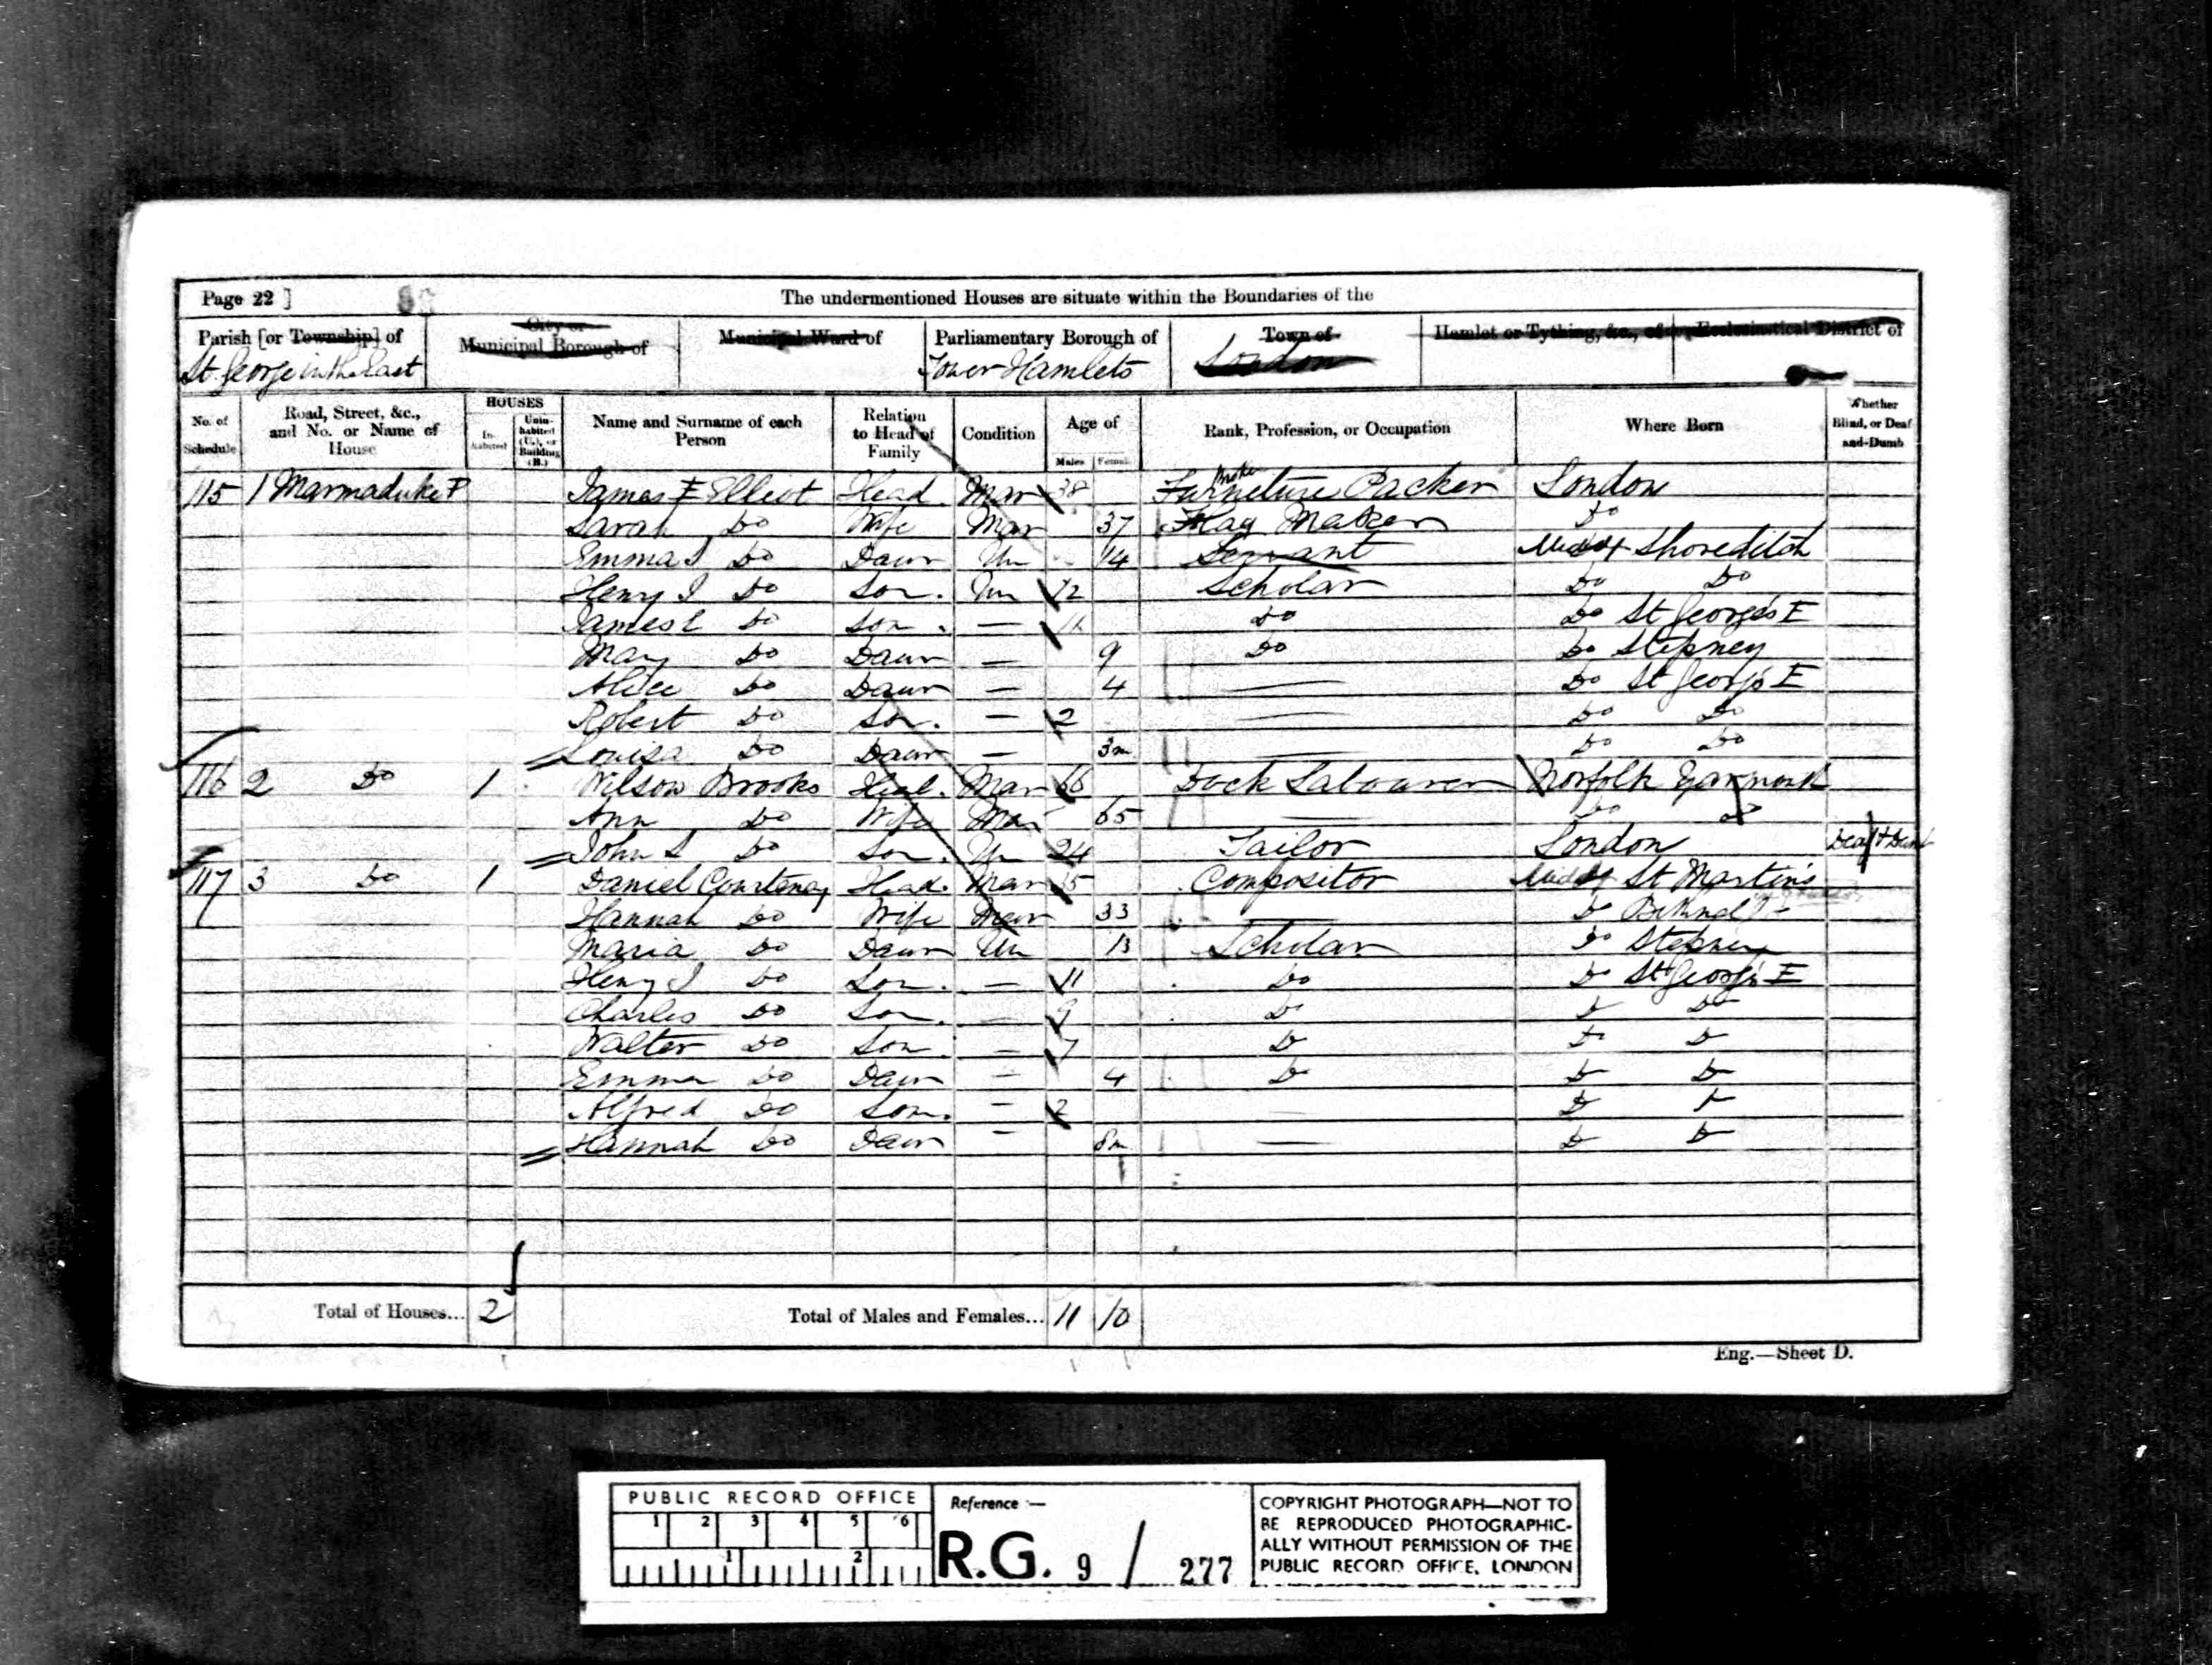 Page 22 ]
The undermentioned Houses are situate within the Boundaries of the
Parish [or Township] of St. George in the East
City or Municipal Borough of
Municipal Ward of
Parliamentary Borough of Tower Hamlets
Town of London
Hamlet or Tything, &c., of
Ecclesiastical District of
No. of Schedule
Road, Street, &c., and No. or Name of House
HOUSES
In-habited
Unin-habited (U.), or Building (B.)
Name and Surname of each Person
Relation to Head of Family
Condition
Age of
Males
Females
Rank, Profession, or Occupation
Where Born
Whether Blind, or Deaf-and-Dumb
115 1 Marmaduke P James F Elliot Head Mar 38 Furneture Packer London
Sarah Do Wife Mar 37 Maker Do
Emma Do Daur Un 14 Servant Middx Shoreditch
Henry J Do Son. Un 12 Scholar Do Do
James Do Son. — Do Do St George's E
Mary Do Daur — 9 Do Do Stepney
Alice Do Daur — 4 — Do St George's E
Robert Do Son. — 2 — Do Do
Louisa Do Daur — 3m — Do Do
116 2 Do 1 Wilson Brooks Head. Mar 66 Dock Labourer Norfolk Yarmouth
Ann Do Wife Mar 65 — Do Do
John S Do Son. Un 24 Tailor London Deaf & Dumb
117 3 Do 1 Daniel Courtenay Head. Mar 35 Compositor Middx St Martins
Hannah Do Wife Mar 33 — Do Bethnal
Maria Do Daur Un 13 Scholar Do Stepney
Henry J Do Son. — 11 Do Do St George's E
Charles Do Son. — 9 Do Do Do
Walter Do Son. — 7 Do Do Do
Emma Do Daur — 4 Do Do Do
Alfred Do Son. — 2 — Do Do
Hannah Do Daur — 8m — Do Do
Total of Houses... 2
Total of Males and Females... 11 10
Eng.—Sheet D.
PUBLIC RECORD OFFICE
1 2 3 4 5 6
1 2
Reference :—
R.G. 9 / 277
COPYRIGHT PHOTOGRAPH—NOT TO
BE REPRODUCED PHOTOGRAPHIC-
ALLY WITHOUT PERMISSION OF THE
PUBLIC RECORD OFFICE, LONDON